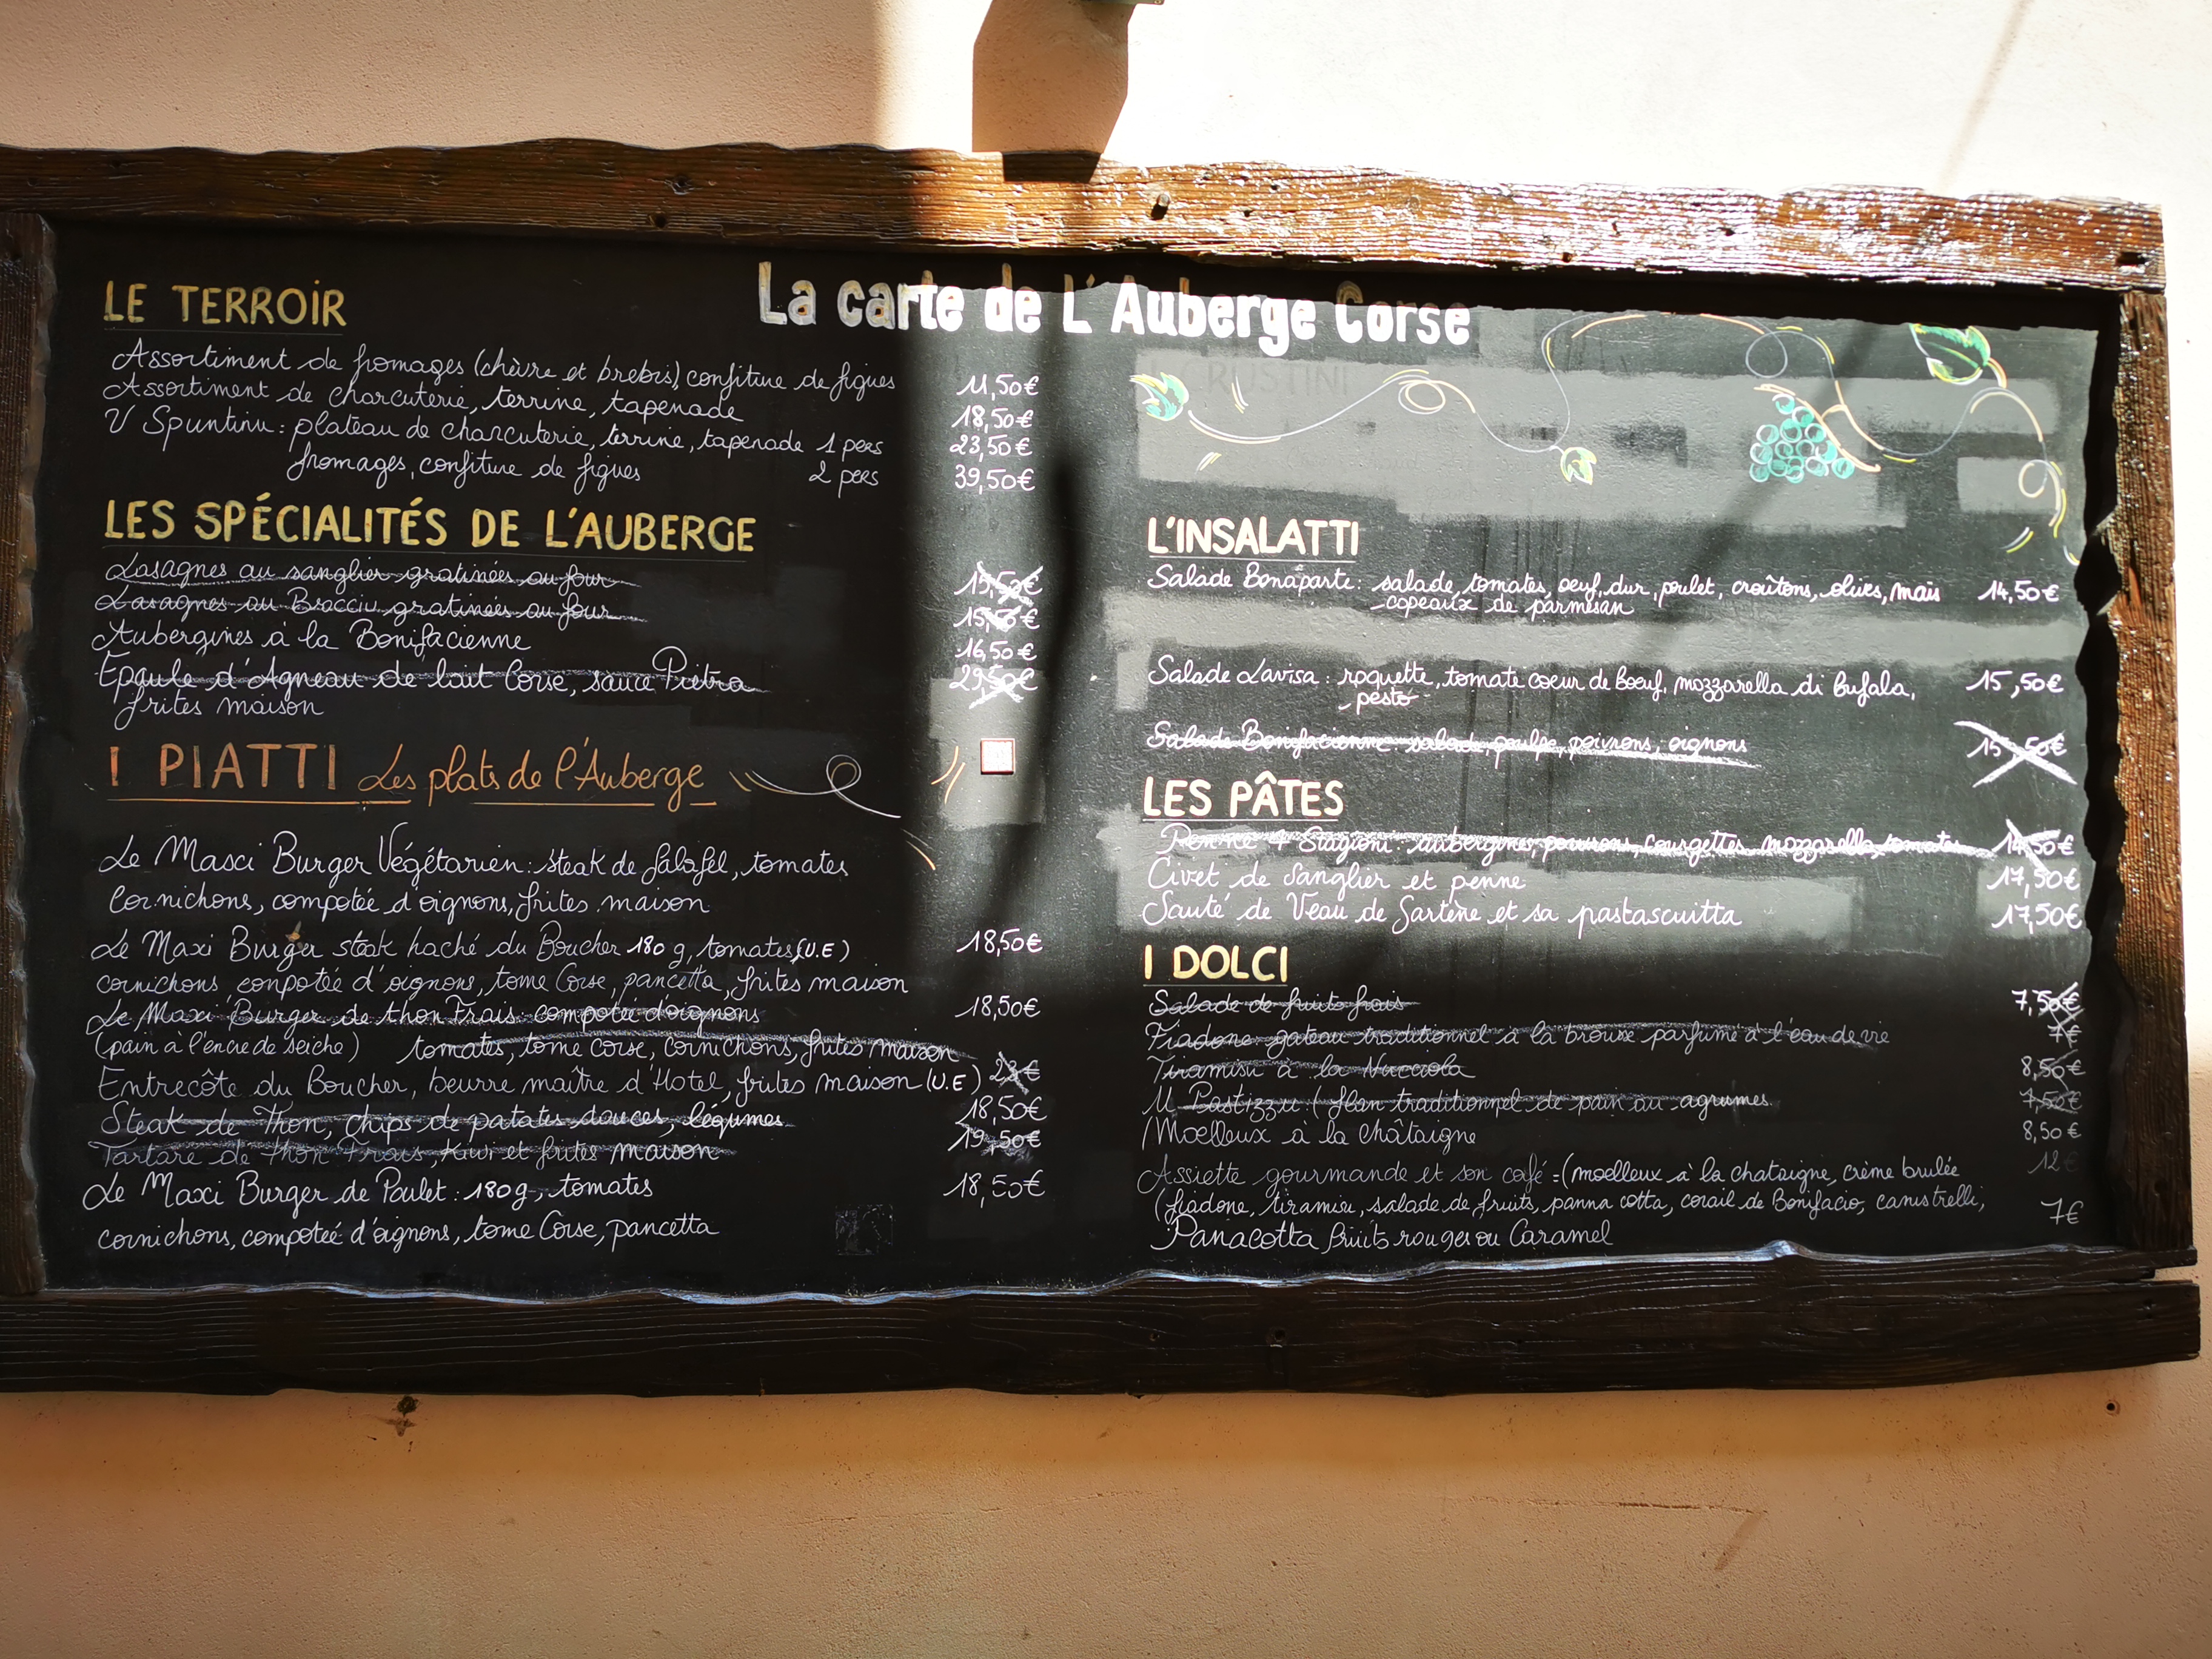 La carte de L'Auberge Corse
LE TERROIR
Assortiment de fromages (chèvre et brebis), confiture de figues 11,50€
Assortiment de charcuterie, terrine, tapenade 18,50€
U Spuntinu : plateau de charcuterie, terrine, tapenade 1 pers 23,50€
fromages, confiture de figues 2 pers 39,50€
LES SPÉCIALITÉS DE L'AUBERGE
Lasagnes au sanglier gratinées au four 15,50€
Lasagnes au Brocciu gratinées au four 15,50€
Aubergines à la Bonifacienne 16,50€
Epaule d'Agneau de lait Corse, sauce Pietra 29,50€
frites maison
I PIATTI Les plats de l'Auberge
Le Maxi Burger Végétarien : steak de falafel, tomates
Cornichons, compotée d'oignons, frites maison
Le Maxi Burger steak haché du Boucher 180 g, tomates (U.E) 18,50€
cornichons, conpotée d'oignons, tome Corse, pancetta, frites maison
Le Maxi Burger de thon Frais compotée d'oignons 18,50€
(pain à l'encre de seiche) tomates, tome corse, cornichons, frites maison
Entrecôte du Boucher, beurre maître d'Hotel, frites maison (U.E) 23€
Steak de Thon, chips de patates douces, légumes 18,50€
Tartare de Thon Frais, Kiwi et frites maison 19,50€
Le Maxi Burger de Poulet : 180g, tomates 18,50€
cornichons, compotée d'oignons, tome Corse, pancetta
CRUSTINI
L'INSALATTI
Salade Bonaparte : salade, tomates, oeuf, dur, poulet, croûtons, olives, maïs 14,50€
copeaux de parmesan
Salade Lavisa : roquette, tomate coeur de Boeuf, mozzarella di bufala, 15,50€
pesto
Salade Bonifacienne : salade, poulpe, poivrons, oignons 15,50€
LES PÂTES
Penne 4 Stagioni : aubergines, poivrons, courgettes, mozzarella, tomates 14,50€
Civet de Sanglier et penne 17,50€
Sauté de Veau de Sartène et sa pastasciutta 17,50€
I DOLCI
Salade de fruits frais 7,50€
Fiadone gateau traditionnel à la brousse parfumé à l'eau de vie 7€
Tiramisu à la Nucciola 8,50€
U Pastizzu (flan traditionnel de pain au agrumes 7,50€
Moelleux à la châtaigne 8,50€
Assiette gourmande et son café : (moelleux à la chataigne, crème brulée 12€
(fiadone, tiramisu, salade de fruits, panna cotta, corail de Bonifacio, canistrelli,
Panacotta fruits rouges ou Caramel 7€